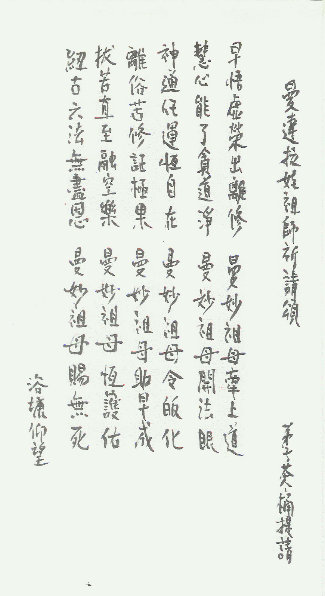 曼達拉娃祖師祈請頌
弟子 桶提請
早悟虛榮出離修 曼妙祖母牽上道
慧心能了貪道淨 曼妙祖母開法眼
神通任運恆自在 曼妙祖母令皈化
離俗苦修証極果 曼妙祖母助早成
拔苦直至融空樂 曼妙祖母恆護佑
紐古六法無盡恩 曼妙祖母賜無死
浴塘仰望